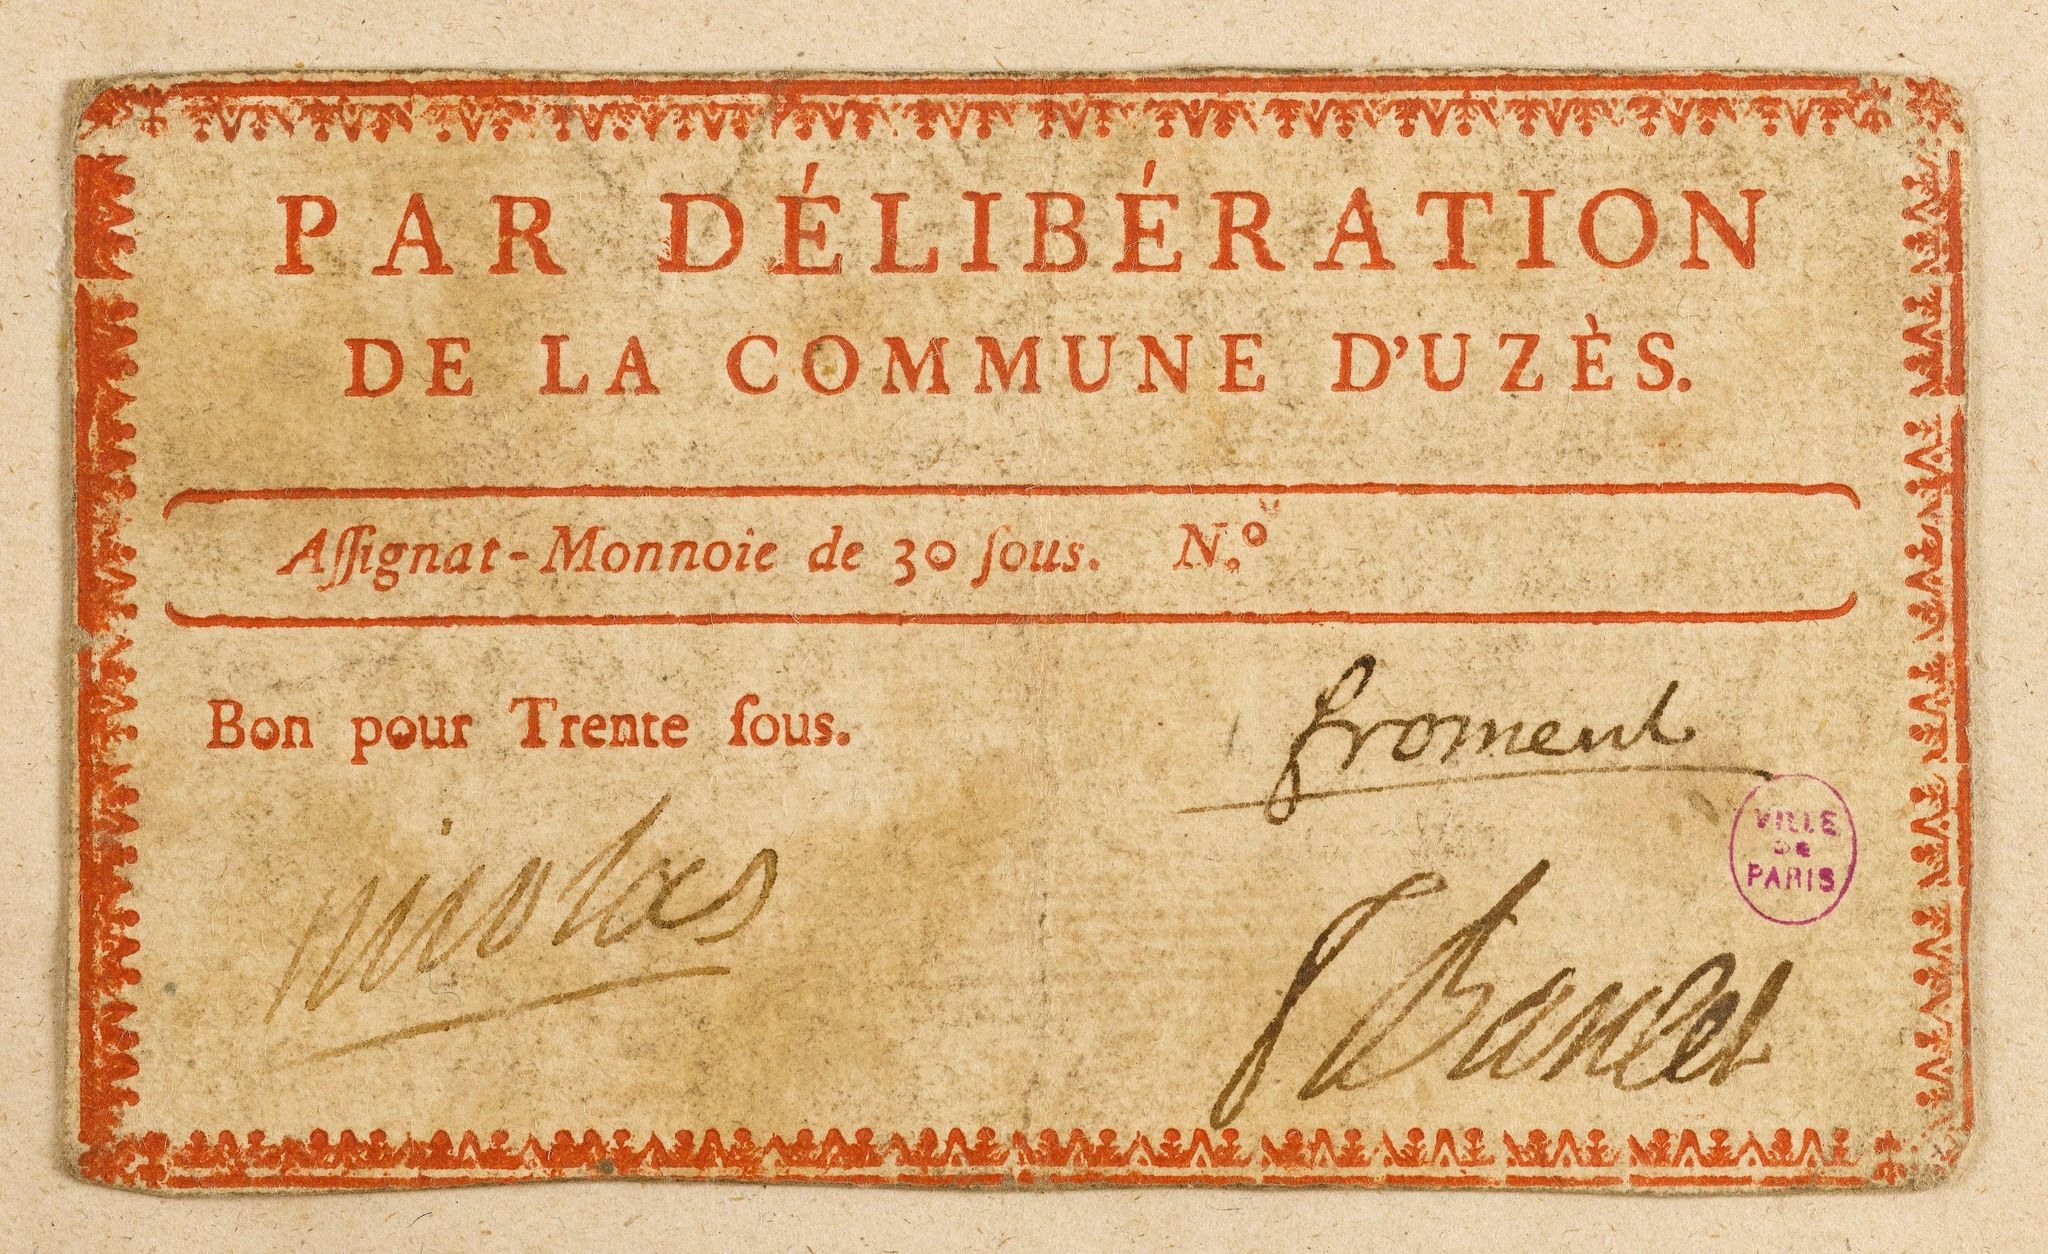 PAR DÉLIBÉRATION
DE LA COMMUNE D'UZÈS.
Aſſignat-Monnoie de 30 ſous. N.º
Bon pour Trente ſous.
froment
nicolas
VILLE
DE
PARIS